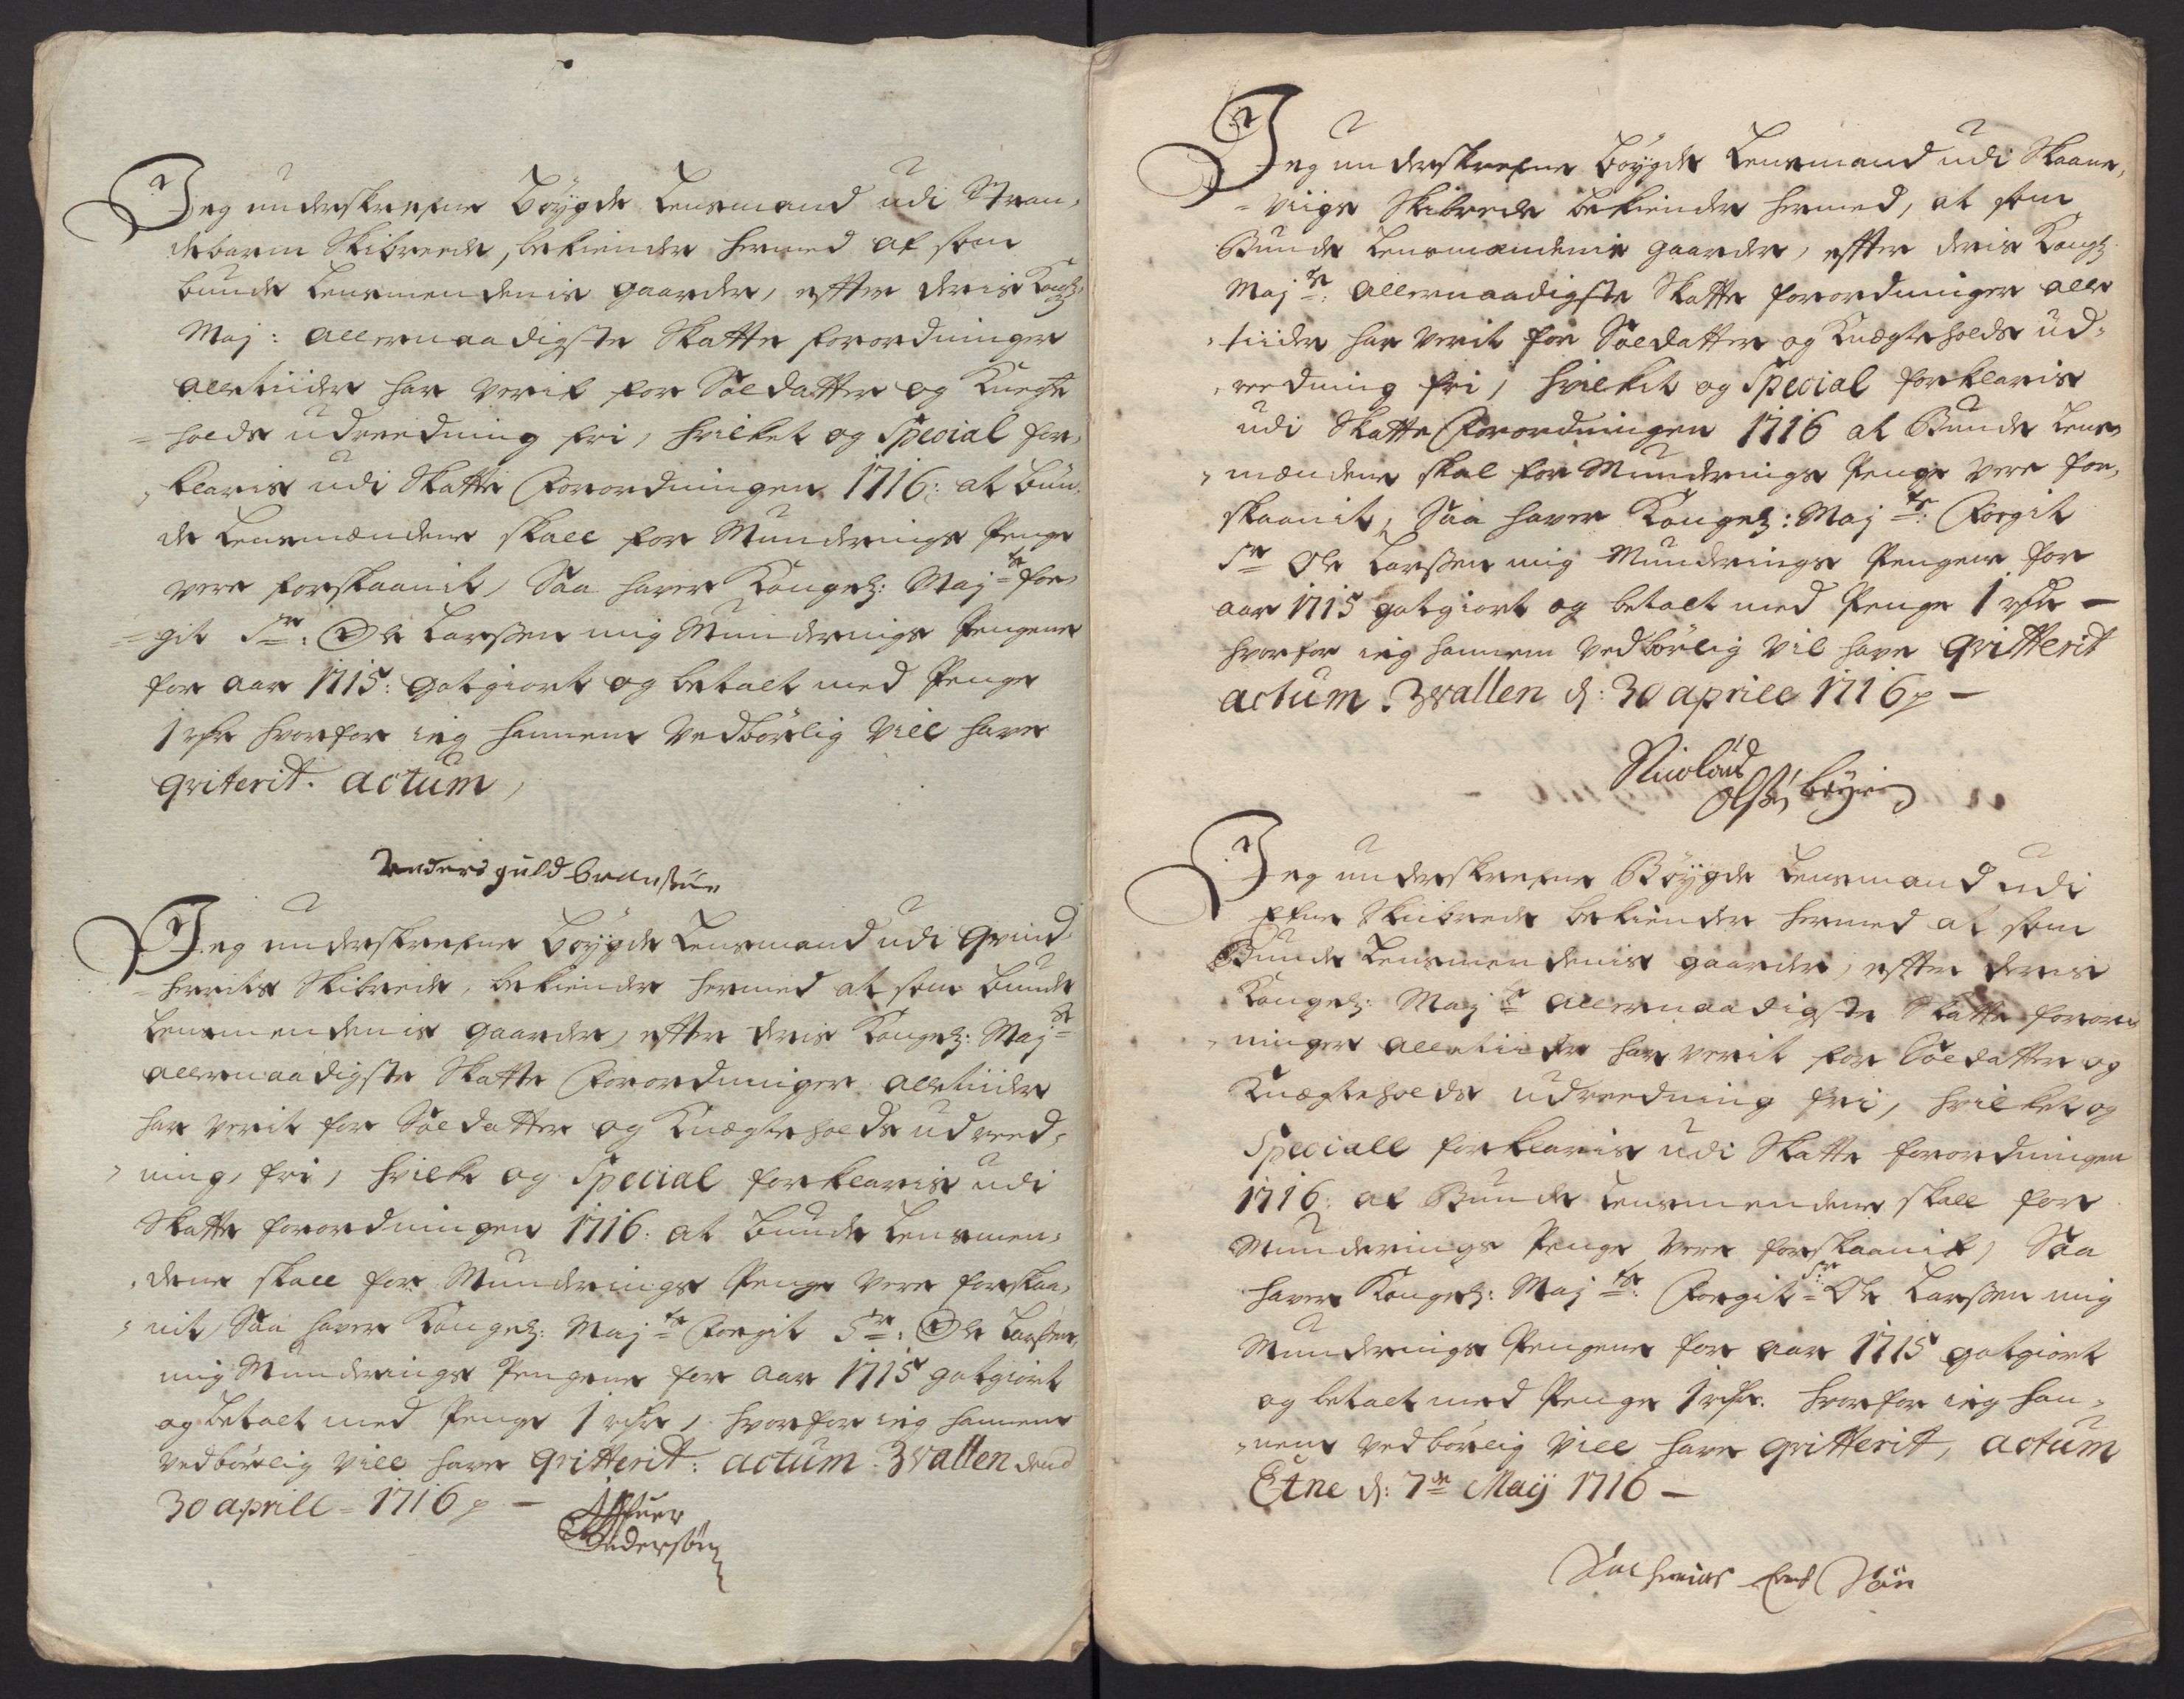 Jeg underskrefne Böygde Lensmand udi Stran,
debarm Skibreede, bekiender hermed at som
bunde Lensmendenis gaarder, effter deris Kongl:
Maj: allernaadigste Skatte forordninger
alletiider har verit for Soldatter og Knegte
=holds udreedning fri, hvilket og Special for,
,klaris udi Skatte Forordningen 1716: at bun,
de Lensmændene skall for Munderings Penge
vere forskaanit, Saa haver Kongel: Maj=ts for,
=git Sr: Ole Larssen mig Munderings Pengene
for aar 1715: gotgiort og betalt med Penge
1 rdr hvorfor ieg hannem vedbörlig vill have
qviterit. actum,
Anders guldbransøn
Jeg underskrefne Böygde Lensmand udi Qvind,
=herrits Skibrede, bekiender hermed at som bunde
Lensmendenis gaarder, effter deris Kongel: Maj=ts
allernaadigste Skatte Forordninger alletiider
har verit for Soldatter og Knægteholds udreed,
,ning, fri, hvilke og Special forklaris udi
Skatte forordningen 1716: at bunde Lensmen,
,dene skall for Munderings Penge vere forskaa,
,nit, Saa haver Kongel: Maj=ts Forgit Sr: Ole Larssen,
mig Munderings Pengene for aar 1715 gotgiort
og betalt med Penge 1 rdr, hvorfor ieg hannem
vedbörlig vill have qvitterit: actum. Zvallen dend
30 aprill = 1716 p —
Andersøn
Jeg underskrefne Böygde Lensmand udi Skaane,
=viigs Skibrede bekiender hermed, at som
Bunde Lensmændenis gaarder, effter deris Kongl:
Maj=ts: allernaadigste Skatte forordninger alle
,tiider har verit for Soldatter og Knægteholds ud,
,reedning fri, hvilkit og Special forklaris
udi Skatte Forordningen 1716 at Bunde Lens
,mændene skal for Munderings Penge vere for,
skaanit, Saa haver Kongel: Maj=ts: Forgit
Sr Ole Larssen mig Munderings Pengene for
aar 1715 gotgiort og betalt med Penge 1 rdr —
hvorfor ieg hannem vedbörlig vil have qvitterit
actum. Zvallen d: 30 aprill 1716 p —
Nicolaus
Olss:
Jeg underskrefne Böygde Lensmand udi
Etne Skibrede bekiender hermed at som
Bunde Lensmendenis gaarder, effter deris
Kongel: Maj=ts allernaadigste Skatte foror,
,ninger alletiider har verit for Soldatter og
Knægteholds udreedning fri, hvilket og
Speciall forklaris udi Skatte forordningen
1716: at Bunde Lensmendene skall for
Munderings Penge vere forskaanit, Saa
haver Kongel: Maj=ts: Forgit Sr: Ole Larssen mig
Munderings Pengene for aar 1715 gotgiort
og betalt med Penge 1 rdr. hvorfor ieg han,
,nem vedbörlig vill have qvitterit, actum
Etne d: 7de Maij 1716 —